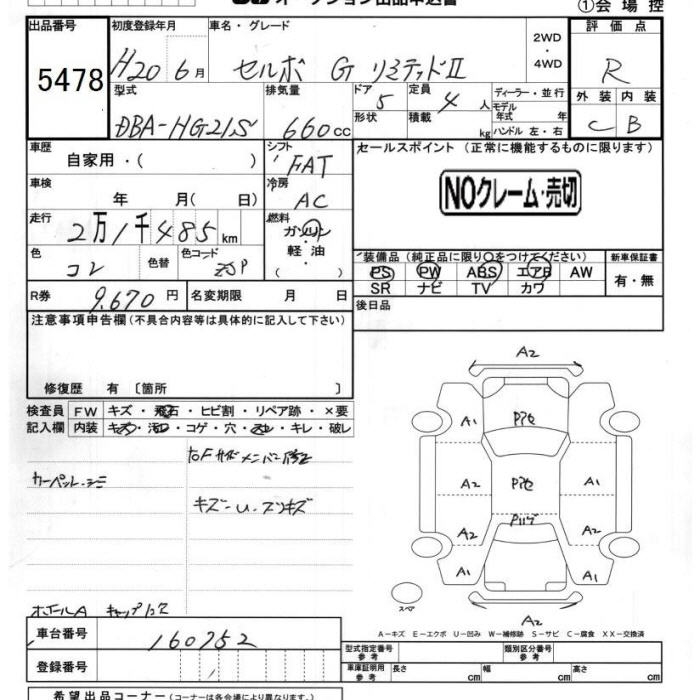 オークション出品申込書
①会場控
出品番号
初度登録年月
車名・グレード
2WD
・
4WD
評価点
5478
H20 6月
セルボ G リミテッドⅡ
R
型式
排気量
ドア
定員
ディーラー・並行
外装 内装
DBA-HG21S
660cc
5
4人
モデル
年式 年
形状
積載
kg
ハンドル 左・右
C B
車歴
シフト
セールスポイント (正常に機能するものに限ります)
自家用・( )
FAT
NOクレーム・売切
車検
冷房
年 月( 日)
AC
走行
燃料
2万1千485km
ガソリン
・
軽油
色
色替
色コード
装備品(純正品に限り○をつけてください)
新車保証書
コン
ZJP
PS PW ABS エアB AW
有・無
SR ナビ TV カワ
R券
9.670円
名変期限 月 日
後日品
注意事項申告欄(不具合内容等は具体的に記入して下さい)
修復歴 有 〔箇所 〕
検査員
FW
キズ・飛石・ヒビ割・リペア跡・×要
記入欄
内装
キズ・汚レ・コゲ・穴・スレ・キレ・破レ
右Fサイドメンバー修正
カーペットシミ
キズ-U・スンキズ
ホイールA キャップ欠
A2
A1
Pアセ
A2
Pアセ
A1
A2
Pハゲ
A2
A1
A1
スペア
A2
A-キズ E-エクボ U-凹み W-補修跡 S-サビ C-腐食 XX-交換済
車台番号
160752
型式指定番号
参考
類別区分番号
参考
登録番号
車庫証明用
参考
長さ cm
幅 cm
高さ cm
希望出品コーナー(コーナーは各会場により異なります。)